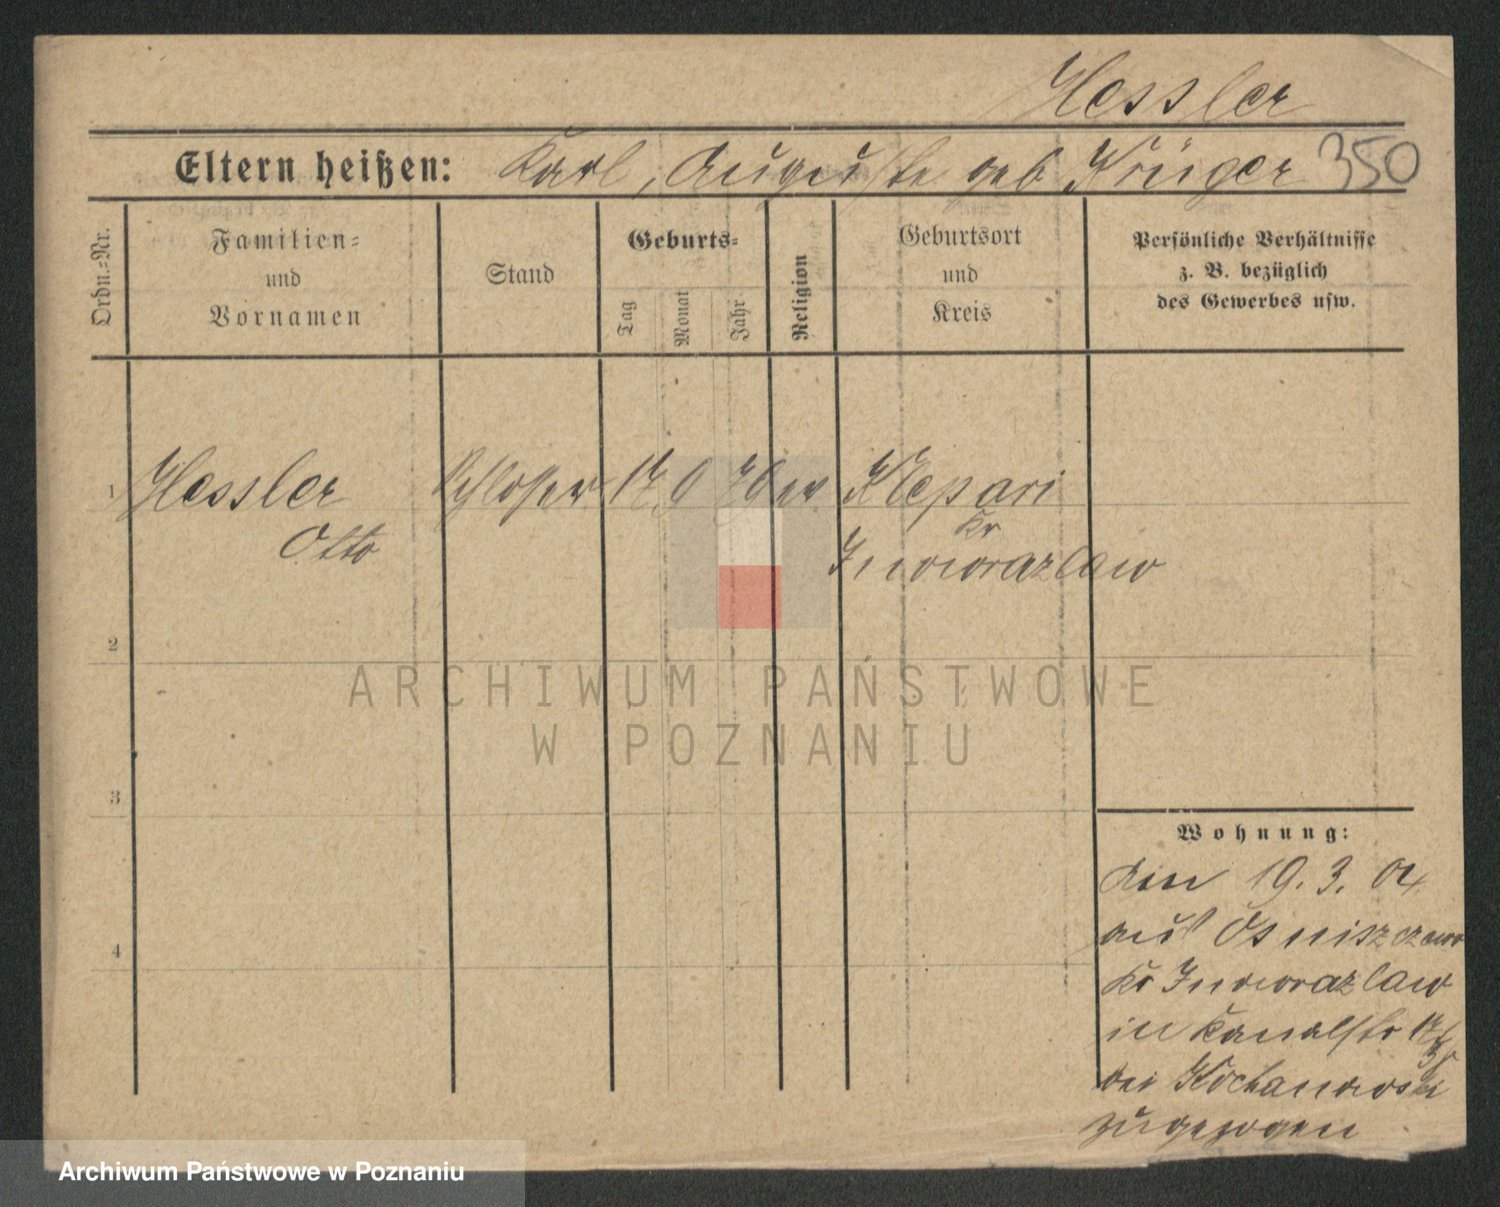 Hessler
Eltern heißen: Karl, Auguste geb Krüger 350
Ordn.=Nr.
Familien=
und
Vornamen
Stand
Geburts=
Tag
Monat
Jahr
Religion
Geburtsort
und
Kreis
Persönliche Verhältnisse
z. B. bezüglich
des Gewerbes usw.
1 Hessler Schlosser 17 9 76 ev Klepari
Otto
Kr
Inowrazlaw
2
3
4
Wohnung:
den 19. 3. 04
aus Osniszczewo
Kr Inowrazlaw
in Kanalstr 17
bei Kochanowski
zugezogen
ARCHIWUM PAŃSTWOWE
W POZNANIU
Archiwum Państwowe w Poznaniu